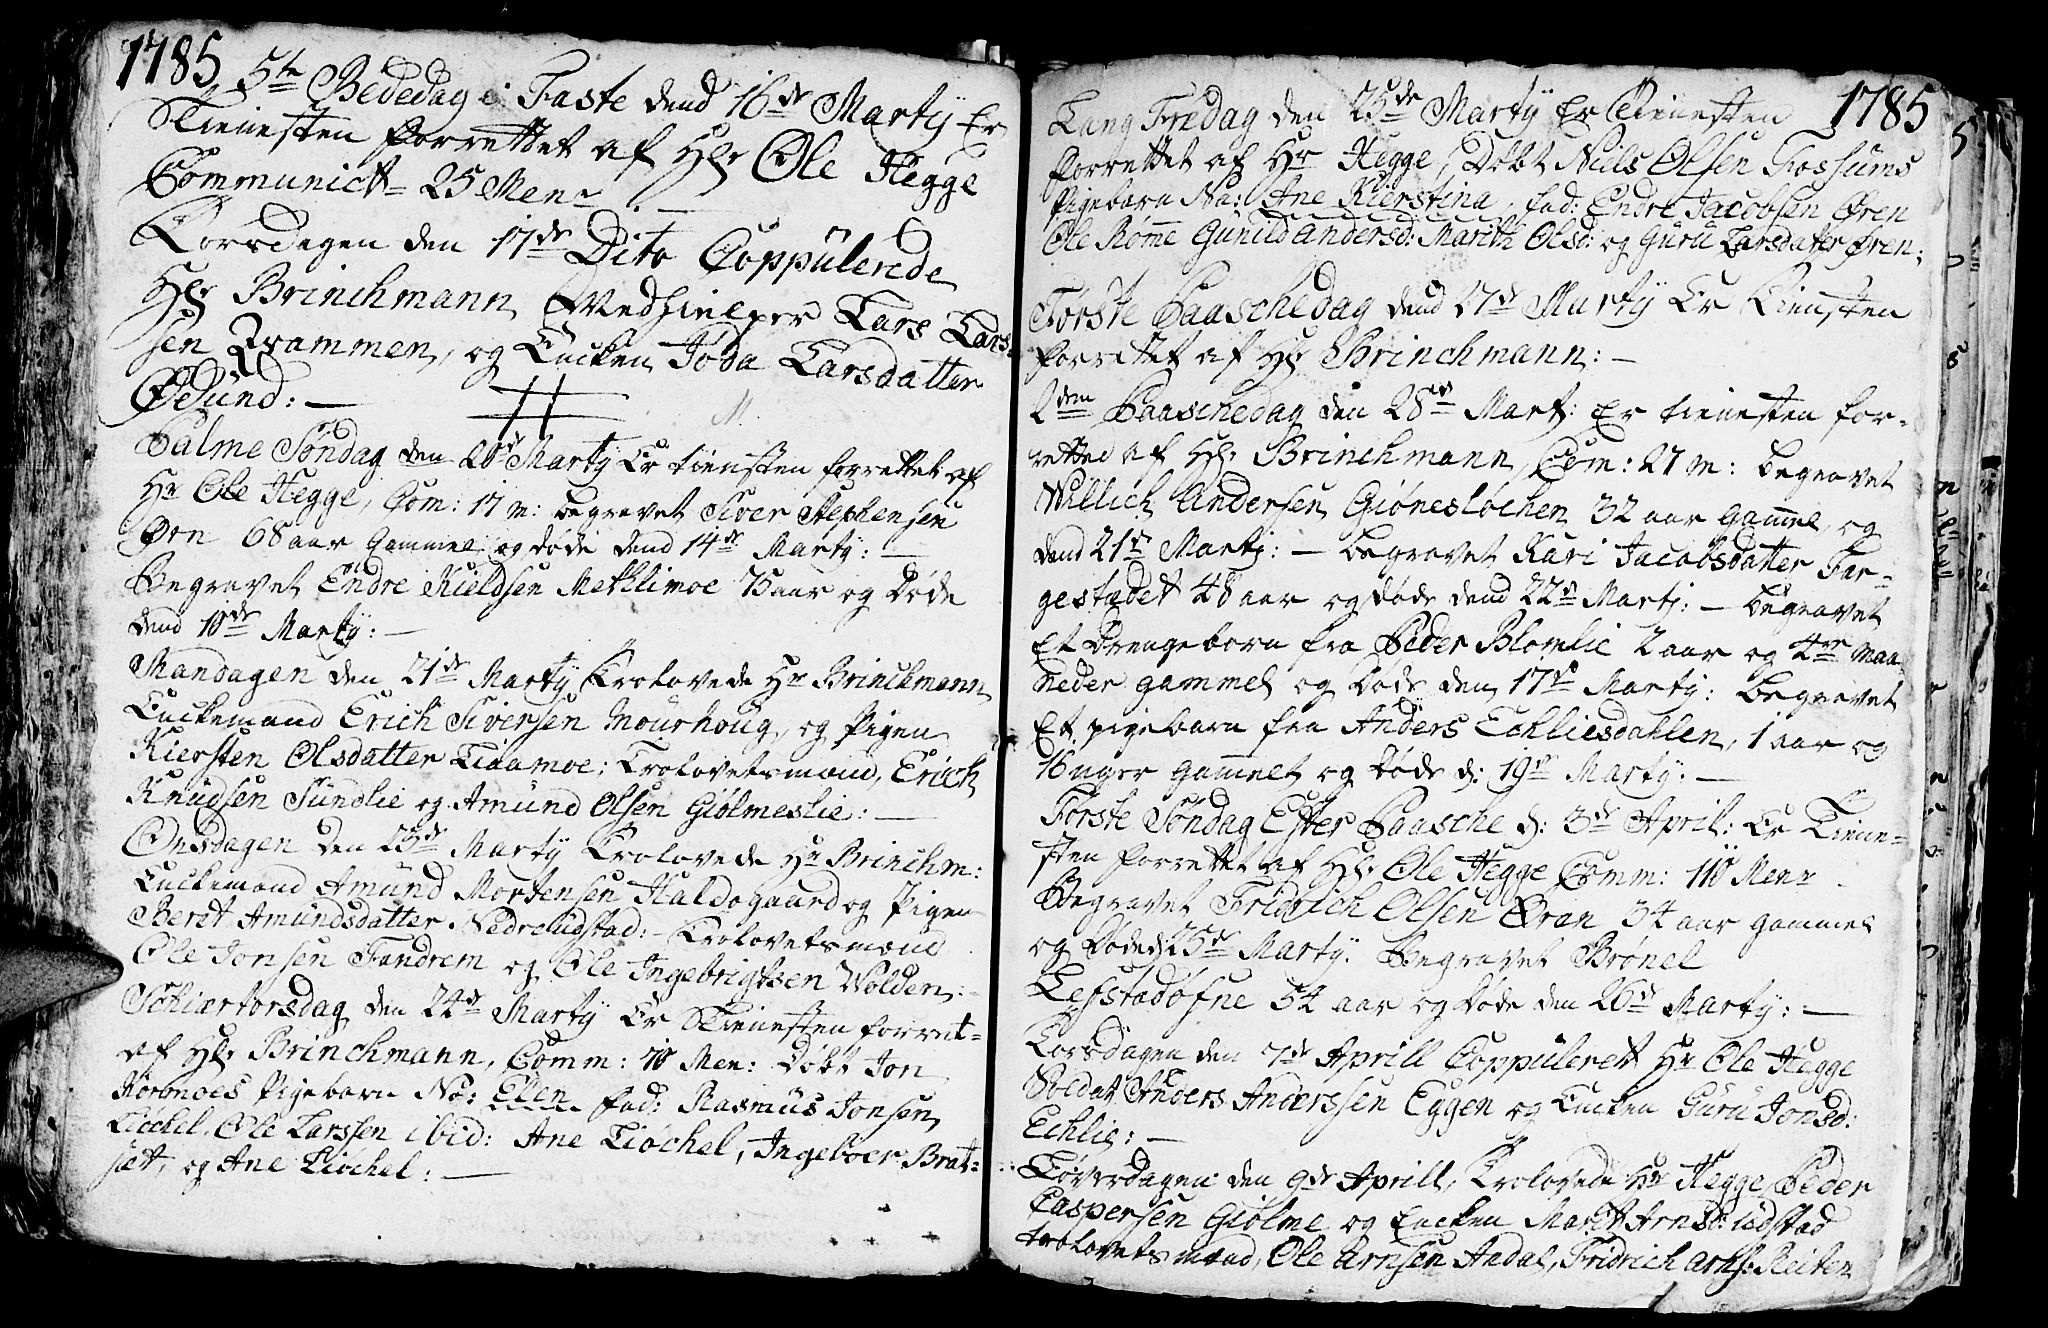 1785
5te Bededag i Faste dend 16de Marty Er
Tienesten forrettet af Hr Ole Hegge
Communict= 25 Menr
Torsdagen den 17de Dito Coppulerede
Hr Brinchmann, Lars Lars-
sen Qvammen, og Encken Joda Larsdatter
Ødsund: —
Palme Søndag den 20de Marty Er tienesten forrettet af
Hr Ole Hegge, Com: 17 m: begravet Siver Stephensen
Øren 68 aar Gammel og døde dend 14de Marty: —
Begravet Endre Kieldsen Methlimoe 75 aar og Døde
dend 10de Marty: —
Mandagen den 21de Marty Trolovede Hr Brinchmann
Enckemand Erich Siversen Mourhoug, og Pigen
Kiersten Olsdatter Liaamoe: Trolovetsmænd, Erich
Knudsen Sundlie og Amund Olsen Giølmeslie: —
Onsdagen den 23de Marty Trolovede Hr Brinchm:
Enckemand Amund Mortensen Haldogaard og Pigen
Beret Amundsdatter Nedreludstad: — Trolovetsmænd
Ole Jonsen Fandrem og Ole Ingebrigtsen Wolden: —
Schiærtorsdag den 24de Marty Er Tienesten forret-
af Hr Brinchmann, Comm: 70 Men: Døbt Jon
Pigebarn Na: Elen fad: Rasmus Jonsen
Liøchel, Ole Larssen ibid: Ane Liøchel, Ingeboer Brat-
set, og Ane Liøchel: —
1785
Lang Fredag den 25de Marty Er Tienesten
forrettet af Hr Hegge, Døbt Niels Olsen Fossums
Pigebarn Na: Ane Kierstina, fad: Endre Jacobsen Øren
Ole Rømme Gunild Andersd: Marith Olsd: og Guru Larsdatter Øren;
Første Paaschedag dend 27de Marty Er Tienesten
forrettet af Hr Brinchmann: —
2den Paaschedag den 28de Mart: Er tienesten for-
retted af Hr Brinchmann, Com: 27 m: begravet
Willich Andersen Giønesløchen 32 aar gammel, og
dend 21de Martj: — begravet Kari Jacobsdatter Far-
gestædet 48 aar og døde dend 22de Martj: — begravet
Et Drengebarn fra Peder Blomlie 2 aar og 4re maa-
neder gammel og Døde den 17de Marty: begravet
Et pigebarn fra Anders Echliesdahlen, 1 aar og
16 uger gammel og døde d: 19de Marty: —
Første Søndag Efter Paasche d: 3de April: Er Tiene-
sten forrettet af Hr Ole Hegge Comm: 110 Menr
Begravet Fridrich Olsen Øran 34 aar gammel
og Døde d: 25de Marty: Begravet Brønel
Lefstadøfne 54 aar og Døde den 26de Marty: —
Torsdagen den 7de Aprill Coppuleret Hr Ole Hegge
Soldat Anders Anderssen Eggen og Encken Guru Jonsd:
Echlie: —
Løverdagen den 9de Aprill, Trolovede Hr Hegge Peder
Caspersen Giølme og Encken Marit Arnsd: Udstad
trolovetsmænd, Ole Arnsen Andal, Fridrich Arns: Reiten